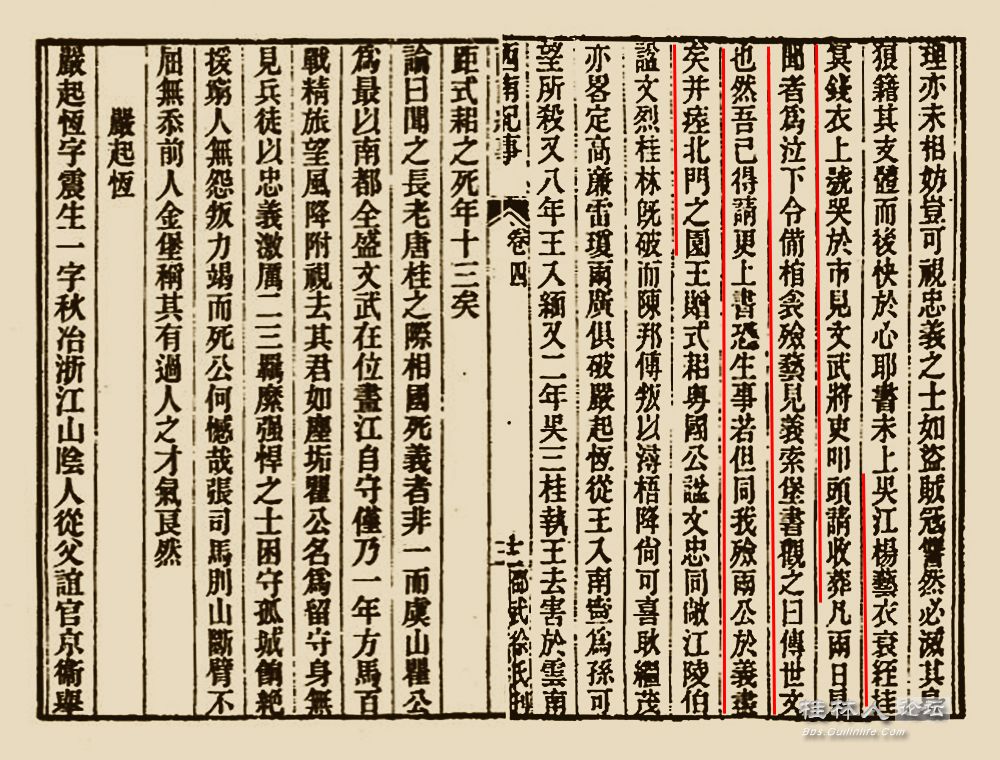 理亦未相妨豈可視忠義之士如盜賊寇讐然必滅其身
狼籍其支體而後快於心耶書未上吳江楊藝衣衰絰桂
冥錢衣上號哭於市見文武將吏叩頭請收葬凡兩日見
聞者為泣下令備棺衾殮藝見義索堡書觀之曰傳世文
也然吾已得請更上書恐生事若但同我殮兩公於義盡
矣并瘞北門之園王贈式耜粵國公諡文忠同敞江陵伯
諡文烈桂林旣破而陳邦傅叛以潯梧降尙可喜耿繼茂
亦畧定高廉雷瓊兩廣俱破嚴起恆從王入南寧為孫可
望所殺又八年王入緬又二年吳三桂執王去害於雲南
西南紀事
卷四
士
邵武徐氏刊
距式耜之死年十三矣
論曰聞之長老唐桂之際相國死義者非一而虞山瞿公
為最以南都全盛文武在位畫江自守僅乃一年方馬百
戰精旅望風降附視去其君如塵垢瞿公名為留守身無
見兵徒以忠義激厲二三羈縻强悍之士困守孤城餉絶
援窮人無怨叛力竭而死公何憾哉張司馬別山斷臂不
屈無忝前人金堡稱其有過人之才氣良然
嚴起恆
嚴起恆字震生一字秋冶浙江山陰人從父誼官京衞舉
桂林人论坛
Bbs.Guilinlife.Com